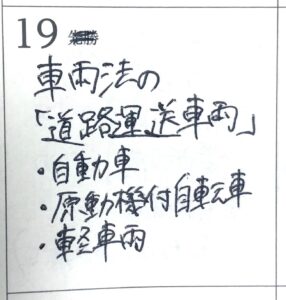 19
車両法の
「道路運送車両」
・自動車
・原動機付自転車
・軽車両